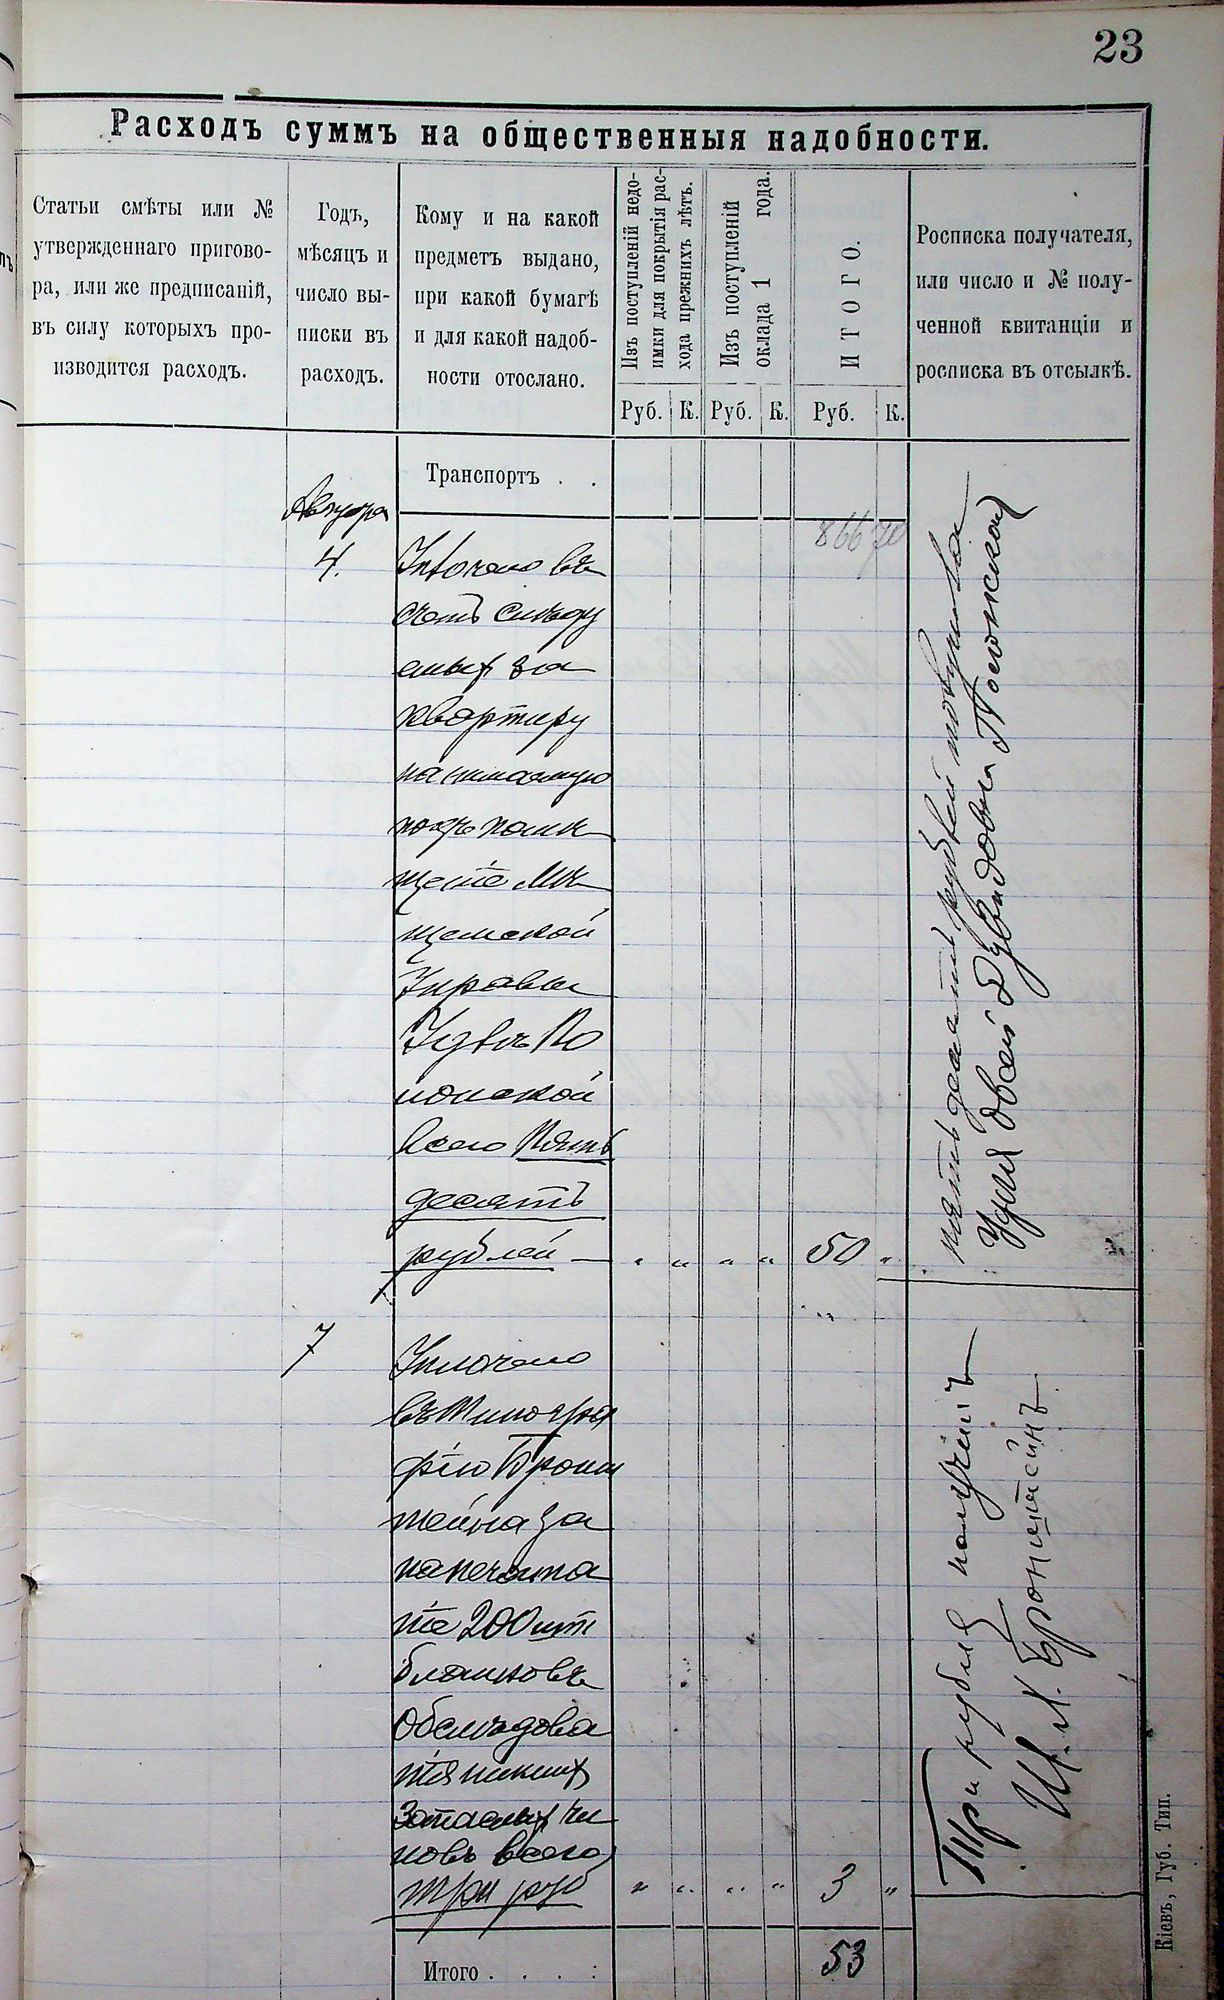 23
Расходъ суммъ на общественныя надобности.
Статьи смѣты или №
утвержденнаго пригово-
ра, или же предписаній,
въ силу которыхъ про-
изводится расходъ.
Годъ,
мѣсяцъ и
число вы-
писки въ
расходъ.
Кому и на какой
предметъ выдано,
при какой бумагѣ
и для какой надоб-
ности отослано.
Изъ поступленій недо-
имки для покрытія рас-
хода прежнихъ лѣтъ.
Изъ поступленій
оклада 1 года.
ИТОГО.
Росписка получателя,
или число и № полу-
ченной квитанціи и
росписка въ отсылкѣ.
Руб. К. Руб. К. Руб. К.
Транспортъ . .
866 70
4.
въ
счетъ слѣду
емыхъ за
квартиру
нанимаемую
подъ помѣ
щеніе Мѣ
щанской
Управы
По
лонской
всего пять
десятъ
рублей — " " " " 50 "
пятьдесятъ рублей получила
Двидовна Полонская
7
Уплочено
въ типогра
фію Бронш
тейна за
напечата
ніе 200 шт
бланковъ
Обслѣдова
нія нижнихъ
Запасныхъ чи
новъ всего
три руб " " " " 3 "
Три рубля получилъ
Ш. Л. Бронштейнъ
Итого . . . . 53
Кіевъ, Губ. Тип.